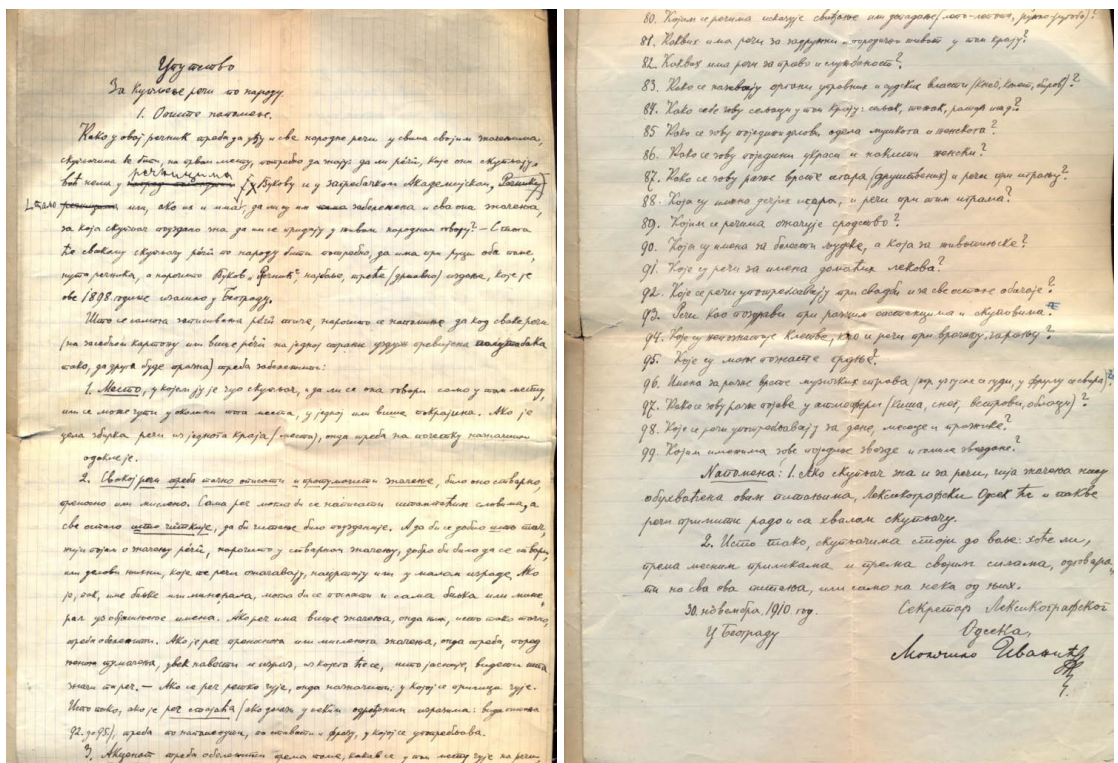 Упутство
За купљење речи по народу.
1. Опште напомене.
Како у овај речник треба да уђу и све народне речи у свима својим значењима,
скупљачима ће бити, на првом месту, потребно да знају да ли речи, које они скупљају,
већ нема у речницима Вукову и у загребачком Академијском, Речнику)
или, ако их и има, да ли су им забележена и сва она значења,
за која скупљач поуздано зна, да им се придају у живом народном говору? — С тога
ће сваком скупљачу речи по народу бити потребно, да има при руци оба поме-
нута речника, а нарочито Вуков „Речник“, најбоље, треће (државно) издање, које је
ове 1898. године изашло у Београду.
Што се самога записивања речи тиче, нарочито се напомиње да код сваке речи
(на засебном картону или више речи на једној страни уздуж превијена полутабака
тако, да друга буде празна) треба забележити:
1. Место, у којем ју је чуо скупљач, и да ли се она говори само у том месту,
или се може чути у околини тога места, у једној или више покрајина. Ако је
цела збирка речи из једнога краја (места), онда треба на почетку назначити
одакле је.
2. Свакој речи треба тачно описати и протумачити значење, било оно стварно,
преносно или мислено. Сама реч могла би се написати штампаним словима, а
све остало што читкије, да би читање било поузданије. А да би се добио што тач-
нији појам о значењу речи, нарочито у стварном значењу, добро би било да се ствари,
или делови њихни, које те речи означавају, нацртају или у малом израде. Ако
је, пак, име биљке или минерала, могла би се послати и сама биљка или мине-
рал уз објашњење имена. Ако реч има више значења, онда их, исто тако тачно,
треба обележити. Ако је реч преноснога или мисленога значења, онда треба, поред
њеног тумачења, увек навести и израз, из којега ће се, што јасније, видети шта
значи та реч. — Ако се реч ретко чује, онда назначити: у којој се прилици чује.
Исто тако, ако је реч стајаћа (ако долази у неким одређеним изразима: види питања
92. до 95), треба то напоменути, па навести и фразу, у којој се употребљава.
3. Акценат треба обележити према томе, какав се у том месту чује на речи,
80. Којим се речима исказује свиђање или допадање (лепо-лепота, ружно-ругоба)?
81. Каквих има речи за задружни и породични живот у том крају?
82. Каквих има речи за право и службеност?
83. Како се називају органи управних и судских власти (кнез, кмет, биров)?
84. Како себе зову сељаци у том крају: сељак, тежак, ратар и т.д.?
85 Како се зову поједини делови одела мушкога и женскога?
86. Како се зову поједини украси и накити женски?
87. Како се зову разне врсте игара (друштвених) и речи при игрању?
88. Која су имена дечјих игара, и речи при тим играма?
89. Којим се речима означује сродство?
90. Која су имена за болести људске, а која за животињске?
91. Које су речи за имена домаћих лекова?
92. Које се речи употребљавају при свадби и за све остале обичаје?
93. Речи као поздрави при разним састанцима и скуповима?
94. Које су непознатије клетве, као и речи при врачању, гатању?
95. Које су мање познате грдње?
96. Имена за разне врсте музичких справа (нпр. уз гусле се гуди, у фрулу се свира)?
97. Како се зову разне појаве у атмосфери (киша, снег, ветрови, облаци)?
98. Које се речи употребљавају за дане, месеце и празнике?
99. Којим именима зове поједине звезде и гомиле звездане?
Напомена: 1. Ако скупљач зна и за речи, чија значења нису
обухваћена овим питањима, Лексикографски Одсек ће и такве
речи примити радо и са хвалом скупљачу.
2. Исто тако, скупљачима стоји до воље: хоће ли,
према месним приликама и према својим силама, одговара-
ти на сва ова питања, или само на нека од њих.
30. новембра, 1910. год.
У Београду
Секретар Лексикографског
Одсека,
Момчило Иванић